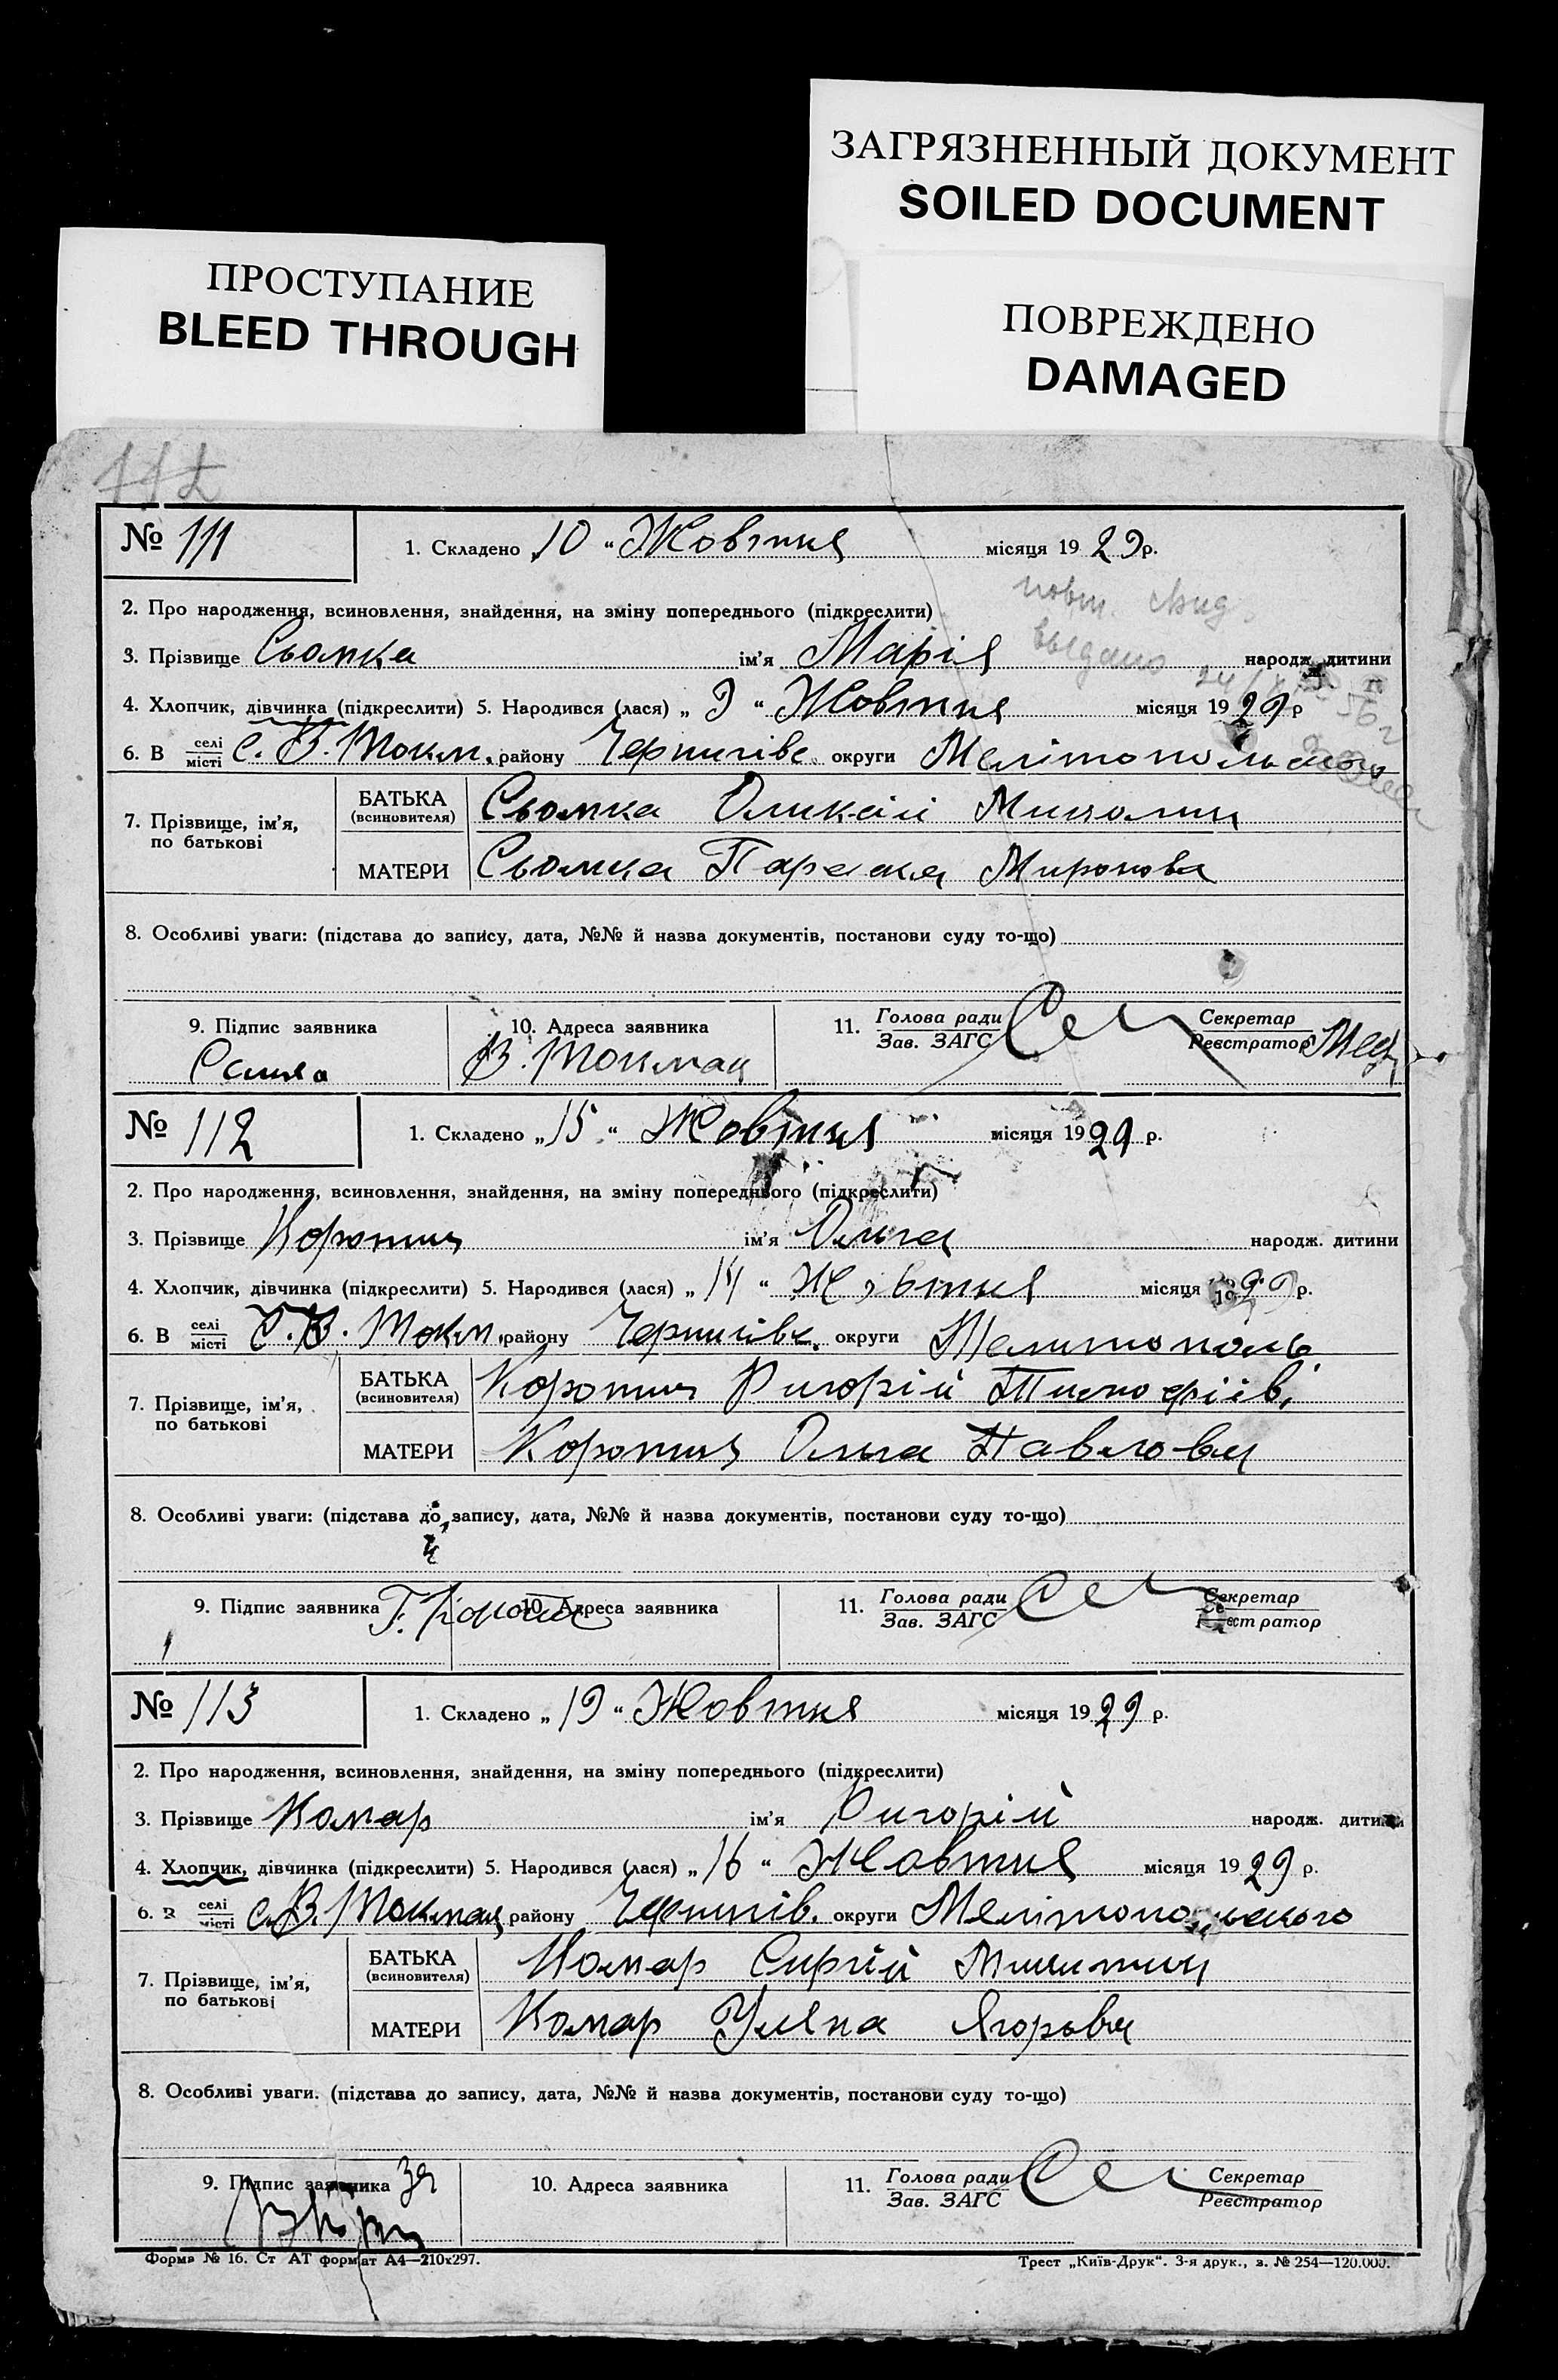 ЗАГРЯЗНЕННЫЙ ДОКУМЕНТ
SOILED DOCUMENT
ПРОСТУПАНИЕ
BLEED THROUGH
ПОВРЕЖДЕНО
DAMAGED
№ 111 1. Складено „10“ Жовтня місяця 1929р.
2. Про народження, всиновлення, знайдення, на зміну попереднього (підкреслити)
повт. свид.
выдано
3. Прізвище Сьомка ім'я Марія народж. дитини
4. Хлопчик, дівчинка (підкреслити) 5. Народився (лася) „9“ Жовтня місяця 1929 р
6. В селі місті с. В. Токм. району Чернигівс. округи Мелітопольского
7. Прізвище, ім'я, по батькові
БАТЬКА (всиновителя) Сьомка
МАТЕРИ Сьомка Параска Миронова
8. Особливі уваги: (підстава до запису, дата, №№ й назва документів, постанови суду то-що)
9. Підпис заявника 10. Адреса заявника 11. Голова ради Зав. ЗАГС Секретар Реєстратор
В. Токмак
№ 112 1. Складено „15“ Жовтня місяця 1929 р.
2. Про народження, всиновлення, знайдення, на зміну попереднього (підкреслити)
3. Прізвище Коротич ім'я Ольга народж. дитини
4. Хлопчик, дівчинка (підкреслити) 5. Народився (лася) „14“ Жовтня місяця 1929 р.
6. В селі місті С. В. Токм. району Чернигівс. округи Мелитополь
7. Прізвище, ім'я, по батькові
БАТЬКА (всиновителя) Коротич Григорій Тимофіїв.
МАТЕРИ Коротич Ольга Павловн
8. Особливі уваги: (підстава до запису, дата, №№ й назва документів, постанови суду то-що)
9. Підпис заявника 10. Адреса заявника 11. Голова ради Зав. ЗАГС Секретар Реєстратор
№ 113 1. Складено „19“ Жовтня місяця 1929 р.
2. Про народження, всиновлення, знайдення, на зміну попереднього (підкреслити)
3. Прізвище Комар ім'я Григорій народж. дитини
4. Хлопчик, дівчинка (підкреслити) 5. Народився (лася) „16“ Жовтня місяця 1929 р.
6. В селі місті с. В. Токмак району Чернигів. округи Мелітопольського
7. Прізвище, ім'я, по батькові
БАТЬКА (всиновителя) Комар Сиргій Микитич
МАТЕРИ Комар Уляна Ягоровн
8. Особливі уваги. (підстава до запису, дата, №№ й назва документів, постанови суду то-що)
9. Підпис заявника за 10. Адреса заявника 11. Голова ради Зав. ЗАГС Секретар Реєстратор
Форма № 16. Ст АТ формат А4—210х297. Трест „Київ-Друк“. 3-я друк., з. № 254—120.000.